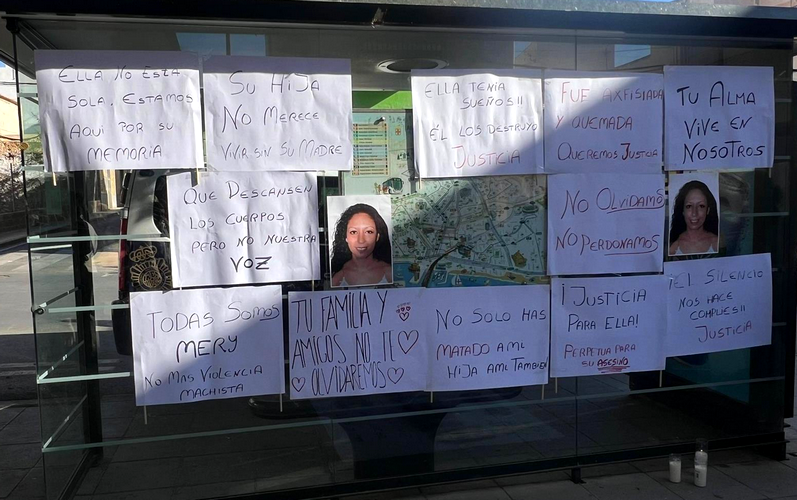 ELLA NO ESTA
SOLA. ESTAMOS
AQUI POR SU
MEMORIA
SU HIJA
NO MERECE
VIVIR SIN SU MADRE
ELLA TENIA
SUEÑOS!!
ÉL LOS DESTRUYO
JUSTICIA
FUE AXFISIADA
Y QUEMADA
QUEREMOS JUSTICIA
TU ALMA
VIVE EN
NOSOTROS
QUE DESCANSEN
LOS CUERPOS
PERO NO NUESTRA
VOZ
NO OLVIDAMOS
NO PERDONAMOS
TODAS SOMOS
MERY
NO MAS VIOLENCIA
MACHISTA
TU FAMILIA Y
AMIGOS NO TE
OLVIDAREMOS
NO SOLO HAS
MATADO A MI
HIJA A MI TAMBIEN
¡JUSTICIA
PARA ELLA!
PERPETUA PARA
SU ASESINO
EL SILENCIO
NOS HACE
COMPLICES!!
JUSTICIA